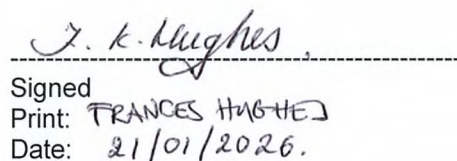 F. K. Hughes.
Signed
Print: FRANCES HUGHES
Date: 21/01/2026.